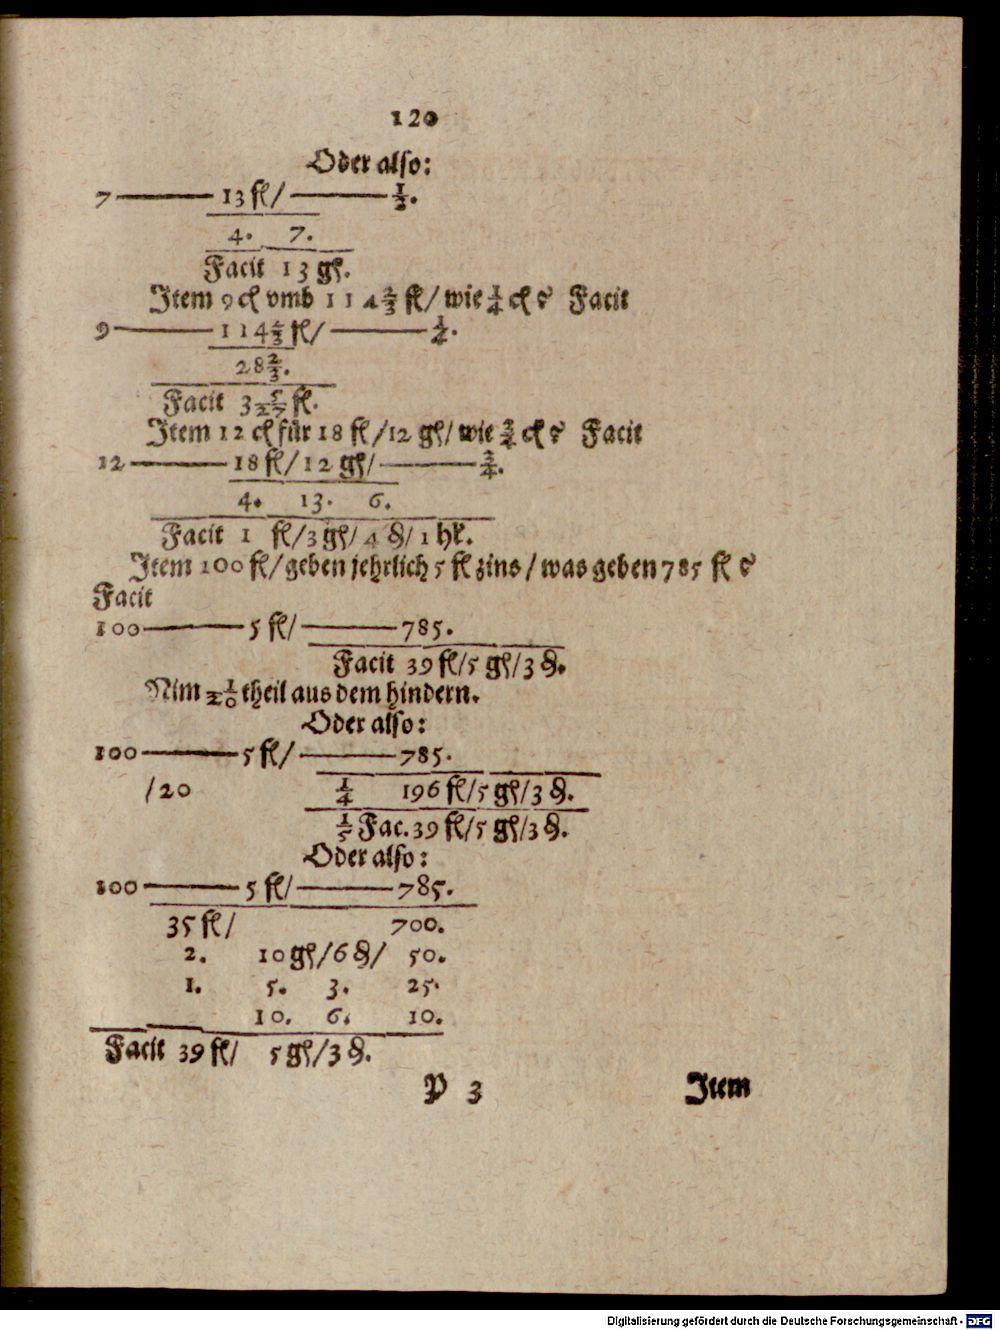 120
Oder also:
7 ——— 13 fl/ ——— 1/2.
4. 7.
Facit 13 gl.
Item 9 cl vmb 114 2/3 fl/ wie 1/4 cl? Facit
9 ——— 114 2/3 fl/ ——— 1/4.
28 2/3.
Facit 3 5/27 fl.
Item 12 cl für 18 fl/12 gl/ wie 3/4 cl? Facit
12 ——— 18 fl/12 gl/ ——— 3/4.
4. 13. 6.
Facit 1 fl/3 gl/4 ₰/1 hl.
Item 100 fl/ geben jehrlich 5 fl zins/ was geben 785 fl?
Facit
100 ——— 5 fl/ ——— 785.
Facit 39 fl/5 gl/3 ₰.
Nim 1/20 theil aus dem hindern.
Oder also:
100 ——— 5 fl/ ——— 785.
/20 1/4 196 fl/5 gl/3 ₰.
1/5 Fac. 39 fl/5 gl/3 ₰.
Oder also:
100 ——— 5 fl/ ——— 785.
35 fl/ 700.
2. 10 gl/6 ₰/ 50.
1. 5. 3. 25.
10. 6. 10.
Facit 39 fl/ 5 gl/3 ₰.
P 3 Item
Digitalisierung gefördert durch die Deutsche Forschungsgemeinschaft - DFG